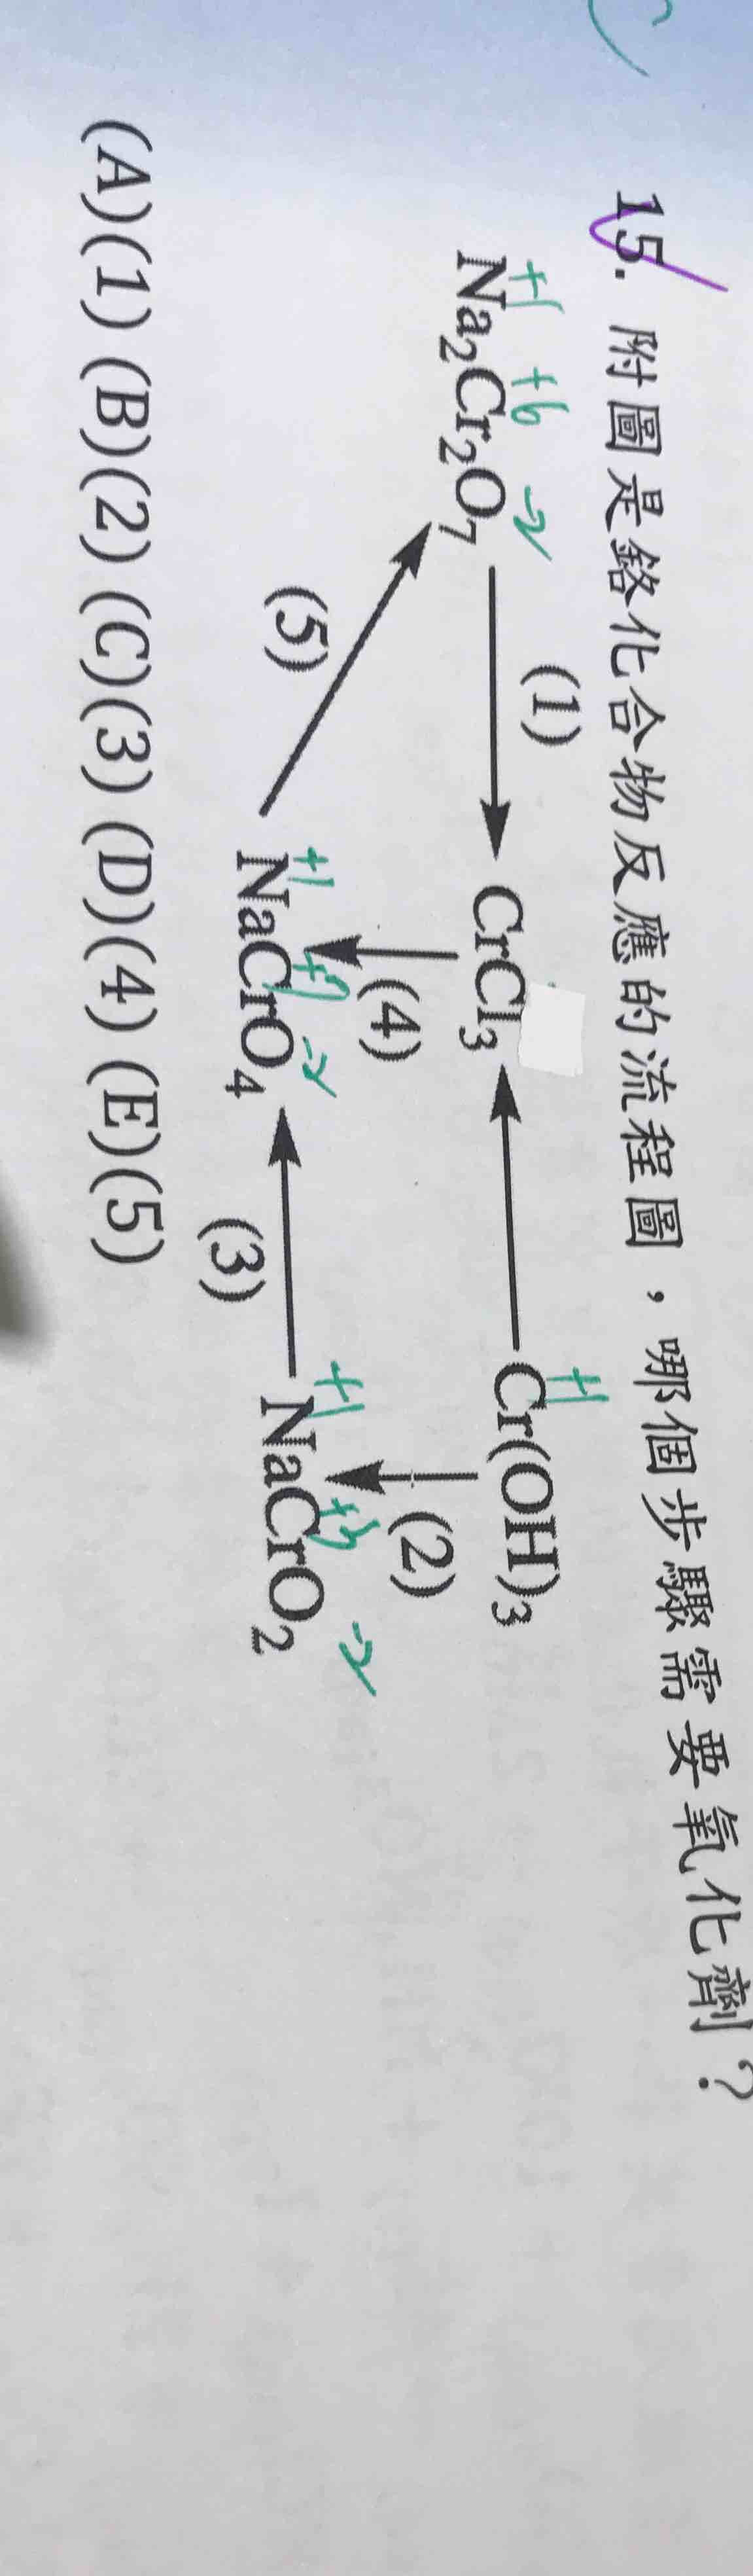 15. 附圖是鉻化合物反應的流程圖，哪個步驟需要氧化劑？
+1 +6 -2 +1
Na₂Cr₂O₇ (1) CrCl₃ Cr(OH)₃
(5) (4) (2)
+1 +7 -2 +1 +3 -2
NaCrO₄ (3) NaCrO₂
(A)(1) (B)(2) (C)(3) (D)(4) (E)(5)